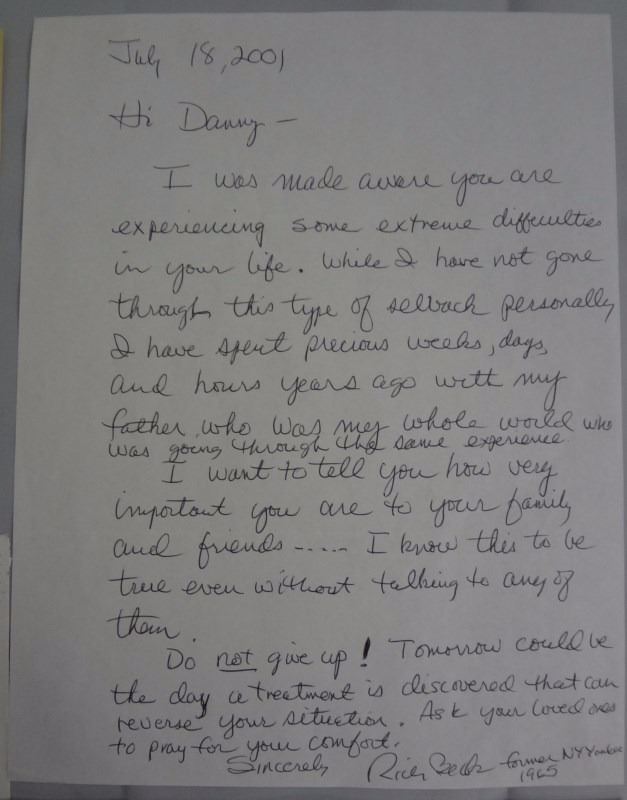 July 18, 2001
Hi Danny —
I was made aware you are
experiencing some extreme difficulties
in your life. While I have not gone
through this type of setback personally
I have spent precious weeks, days,
and hours years ago with my
father, who was my whole world who
was going through the same experience.
I want to tell you how very
important you are to your family
and friends ..... I know this to be
true even without talking to any of
them.
Do not give up! Tomorrow could be
the day a treatment is discovered that can
reverse your situation. Ask your loved ones
to pray for your comfort.
Sincerely Rich Beck former NY Yankee
1965